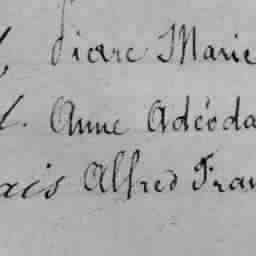 l, Piere Marie
l. Anne Adéoda
xis Alfred Fran